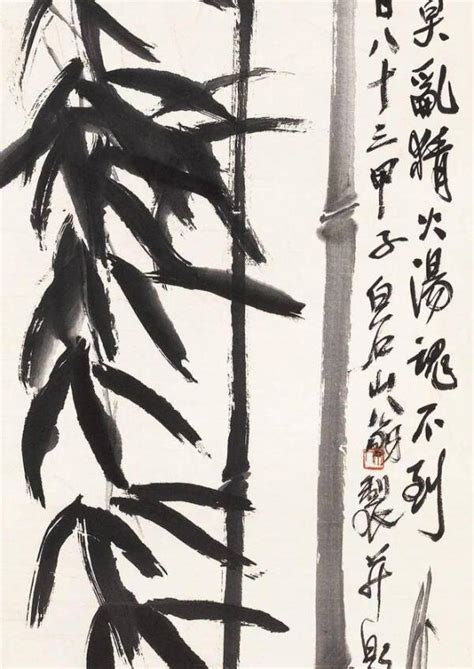 莫亂猜火湯魂不到
日八十三甲子白石山翁製并題